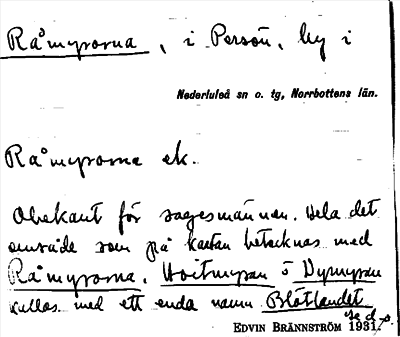 Råmyrorna, i Persön, by i
Nederluleå sn o. tg, Norrbottens län.
Råmyrorna ek.
Obekant för sagesmännen. Hela det
område som på kartan betecknas med
Råmyrorna, Hoitmyran o Dymyran
kallas med ett enda namn Blötlandet
se d. o.
EDVIN BRÄNNSTRÖM 1931.